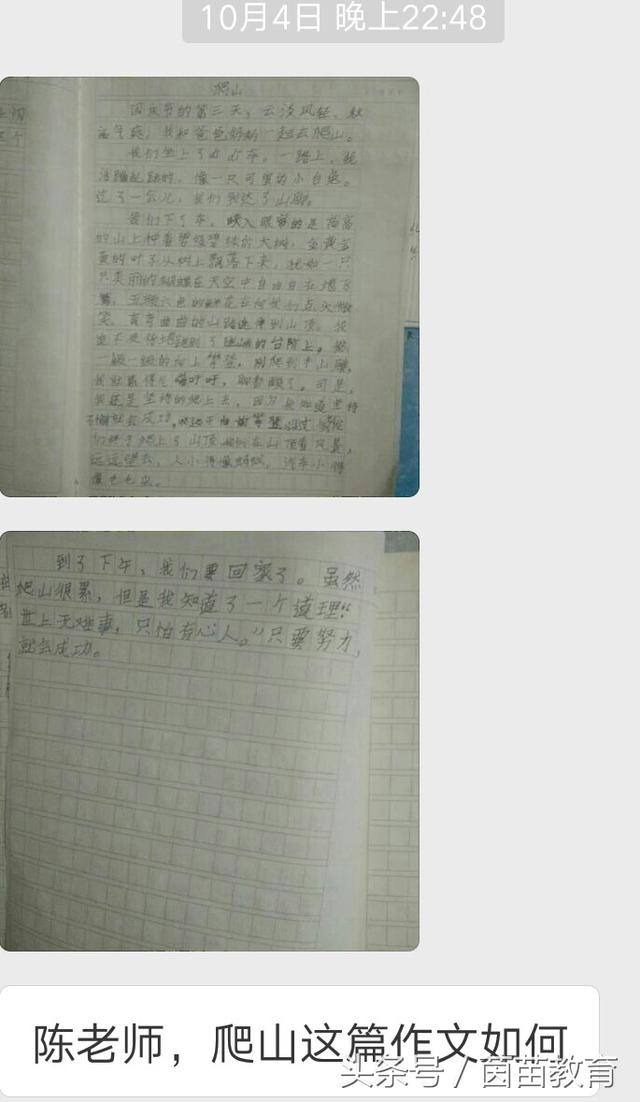 10月4日 晚上22:48
爬山
国庆节的第三天，云淡风轻，秋
高气爽，我和爸爸妈妈一起去爬山。
我们坐上了 车，一路上，我
活蹦乱跳的，像一只可爱的小白兔。
过了一会儿，我们到达了山脚。
我们下了车，映入眼帘的是高高
的山上种着碧绿碧绿的大树，金黄金
黄的叶子从树上飘落下来，犹如一只
只美丽的蝴蝶在天空中自由自在地飞
五颜六色的鲜花在向我们点头微
笑，弯弯曲曲的山路连绵到山顶，我
迫不及待地跑到了 的台阶上。
一级一级的向上攀登，刚爬到半山腰，
我就累得气喘吁吁， 都酸了。可是，
我还是坚持的爬上去，因为我知道坚持
就会成功。
们终于爬上了山顶 在山顶看风景，
远远望去，人小得像蚂蚁，汽车小得
像七七虫。
到了下午，我们要回家了。虽然
爬山很累，但是我知道了一个道理：“
世上无难事，只怕有心人。”只要努力，
就会成功。
陈老师，爬山这篇作文如何
头条号 / 茵苗教育